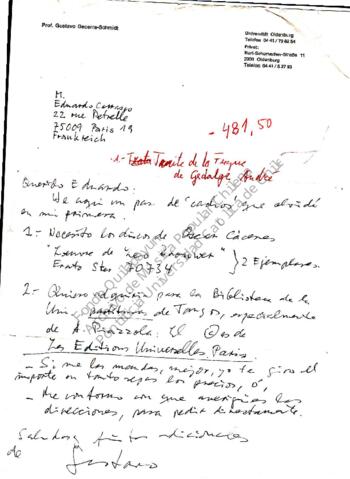 Prof. Gustavo Becerra-Schmidt
Universität Oldenburg
Telefon 04 41 / 79 82 54
Privat:
Kurt-Schumacher-Straße 11
2900 Oldenburg
Telefon 04 41 / 5 27 93
M.
Eduardo Carrasco
22 rue Petrelle
75009 Paris 19
Frankreich
- 481,50
1- Traité de la Fugue
de Gedalge André
Querido Eduardo.
He aquí un par de "cachos" que olvidé
en mi primera.
1- Necesito los discos de Oscar Cáceres
"L'œuvre de Leo Brouwer"
Erato Stu 70734
2 Ejemplares.
2- Quiero adquirir para la Biblioteca de la
Uni- partituras de Tangos, especialmente
de A. Piazzola. El es de
Les Editions Universelles Paris.
- Si me los mandas, mejor, yo te giro el
importe en tanto sepas los precios, ó,
- Me conformo con que averigües las
direcciones, para pedir directamente.
Saludos
de
Gustavo